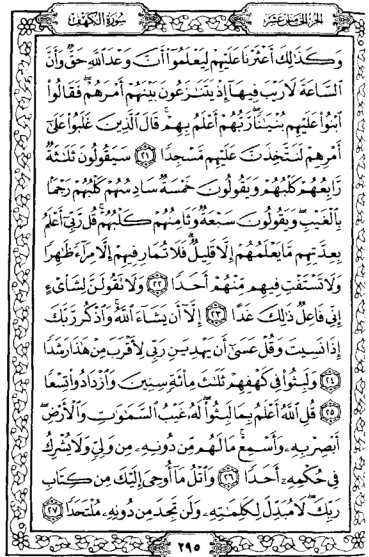 سُورَةُ الكَهْفِ
الجُزْءُ الخَامِسَ عَشَرَ
وَكَذَٰلِكَ أَعْثَرْنَا عَلَيْهِمْ لِيَعْلَمُوٓا۟ أَنَّ وَعْدَ ٱللَّهِ حَقٌّ وَأَنَّ
ٱلسَّاعَةَ لَا رَيْبَ فِيهَآ إِذْ يَتَنَٰزَعُونَ بَيْنَهُمْ أَمْرَهُمْ ۖ فَقَالُوا۟
ٱبْنُوا۟ عَلَيْهِم بُنْيَٰنًا ۖ رَّبُّهُمْ أَعْلَمُ بِهِمْ ۚ قَالَ ٱلَّذِينَ غَلَبُوا۟ عَلَىٰٓ
أَمْرِهِمْ لَنَتَّخِذَنَّ عَلَيْهِم مَّسْجِدًا ٢١ سَيَقُولُونَ ثَلَٰثَةٌ
رَّابِعُهُمْ كَلْبُهُمْ وَيَقُولُونَ خَمْسَةٌ سَادِسُهُمْ كَلْبُهُمْ رَجْمًۢا
بِٱلْغَيْبِ ۖ وَيَقُولُونَ سَبْعَةٌ وَثَامِنُهُمْ كَلْبُهُمْ ۚ قُل رَّبِّىٓ أَعْلَمُ
بِعِدَّتِهِم مَّا يَعْلَمُهُمْ إِلَّا قَلِيلٌ ۗ فَلَا تُمَارِ فِيهِمْ إِلَّا مِرَآءً ظَٰهِرًا
وَلَا تَسْتَفْتِ فِيهِم مِّنْهُمْ أَحَدًا ٢٢ وَلَا تَقُولَنَّ لِشَا۟ىْءٍ
إِنِّى فَاعِلٌ ذَٰلِكَ غَدًا ٢٣ إِلَّآ أَن يَشَآءَ ٱللَّهُ ۚ وَٱذْكُر رَّبَّكَ
إِذَا نَسِيتَ وَقُلْ عَسَىٰٓ أَن يَهْدِيَنِ رَبِّى لِأَقْرَبَ مِنْ هَٰذَا رَشَدًا
٢٤ وَلَبِثُوا۟ فِى كَهْفِهِمْ ثَلَٰثَ مِا۟ئَةٍ سِنِينَ وَٱزْدَادُوا۟ تِسْعًا
٢٥ قُلِ ٱللَّهُ أَعْلَمُ بِمَا لَبِثُوا۟ ۖ لَهُۥ غَيْبُ ٱلسَّمَٰوَٰتِ وَٱلْأَرْضِ ۖ
أَبْصِرْ بِهِۦ وَأَسْمِعْ ۚ مَا لَهُم مِّن دُونِهِۦ مِن وَلِىٍّ وَلَا يُشْرِكُ
فِى حُكْمِهِۦٓ أَحَدًا ٢٦ وَٱتْلُ مَآ أُوحِىَ إِلَيْكَ مِن كِتَابِ
رَبِّكَ ۖ لَا مُبَدِّلَ لِكَلِمَٰتِهِۦ وَلَن تَجِدَ مِن دُونِهِۦ مُلْتَحَدًا ٢٧
٢٩٥